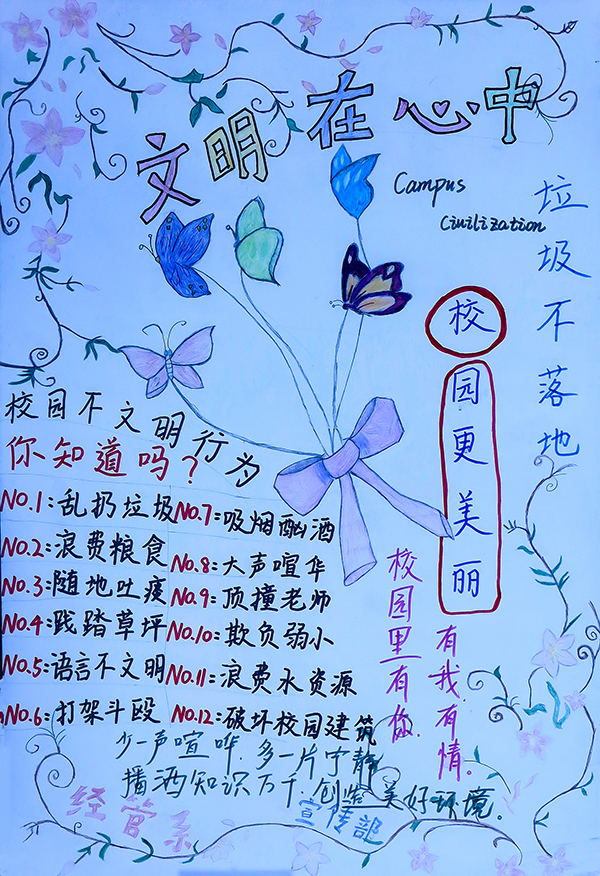 文明在心中
Campus
Civilization
垃圾不落地
校园更美丽
校园不文明行为
你知道吗？
NO.1:乱扔垃圾
NO.2:浪费粮食
NO.3:随地吐痰
NO.4:践踏草坪
NO.5:语言不文明
NO.6:打架斗殴
NO.7:吸烟酗酒
NO.8:大声喧华
NO.9:顶撞老师
NO.10:欺负弱小
NO.11:浪费水资源
NO.12:破坏校园建筑
校园里有你
有我有情.
少一声喧哗.多一片宁静
播洒知识万千.创造美好环境.
经管系
宣传部